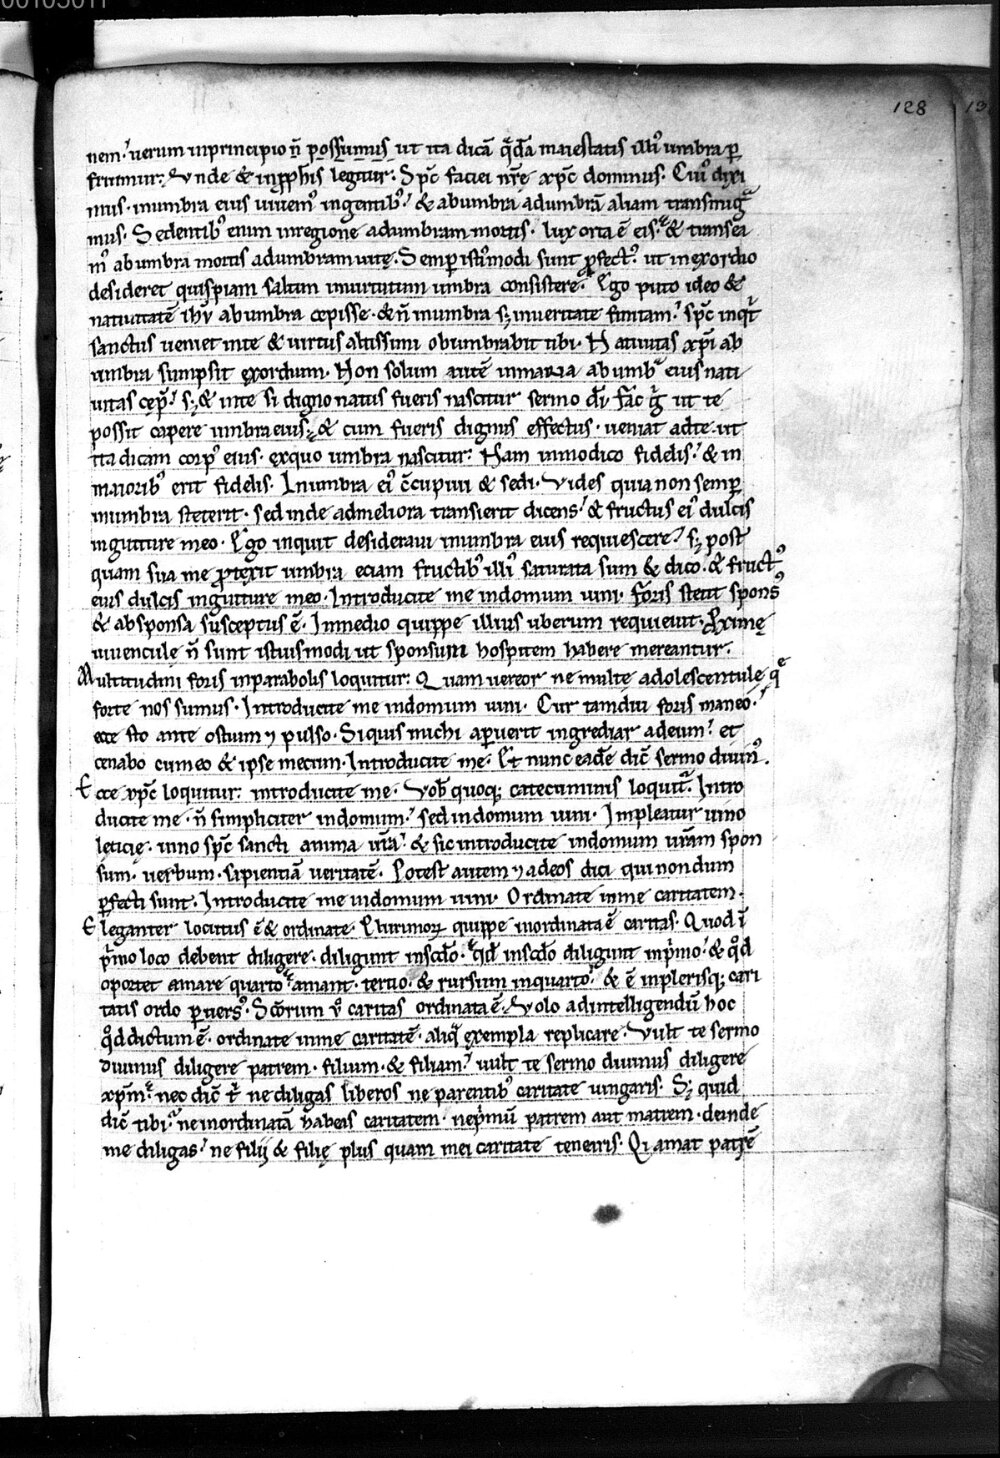 00103011
128
13
nem.' uerum inprincipio n̄ possumus ut ita dicā q̄dā maiestatis illi᾽ umbra ꝑ
fruimur. Vnde & inꝓph̄is legitur: Sp̄c faciei nr̄ę xp̄c dominus. Cui᾽ dixi
mus. inumbra eius uiuem᾽ ingentib᾽.' & abumbra adumbrā aliam transmigᵃ
mus. Sedentib᾽ enim inregione adumbram mortis. lux orta ē eis. & transea
m᾽ abumbra mortis adumbram uitę. Semꝑ isti᾽modi sunt ꝓfect᾽. ut inexordio
desideret quispiam saltim inuirtutum umbra consistere. Ego puto ideo &
natiuitatē ih̄u abumbra cępisse. & n̄ inumbra sꝫ inueritate finitam.' sp̄c inqt
sanctus ueniet inte & uirtus altissimi obumbrabit tibi. Natiuitas xp̄i ab
umbra sumpsit exordium. Non solum autē inmaria abumbᵃ eius nati
uitas cep̄.' sꝫ & inte si digno natus fueris nascitur sermo dī. fac ḡ ut te
possit capere umbra eius. & cum fueris dignus effectus. ueniat adte ut
ita dicam corp᾽ eius. exquo umbra nascitur. Nam inmodico fidelis.' & in
maiorib᾽ erit fidelis. Inumbra ei᾽ c̄cupiui & sedi. Vides quia non semꝑ
inumbra steterit. sed inde admeliora transierit dicens.' & fructus ei᾽ dulcis
ingutture meo. Ego inquit desideraui inumbra eius requiescere.' sꝫ post
quam sua me ꝓtexit umbra eciam fructib᾽ illi᾽ saturata sum & dico. & fruct᾽
eius dulcis ingutture meo. Introducite me indomum uini. Foris stetit spons᾽
& absponsa susceptus ē. Inmedio quippe illius uberum requieuit. Plurimę
iuuenculę n̄ sunt istiusmodi ut sponsum hospitem habere mereantur.
Multitudini foris inparabolis loquitur. Quam uereor ne multę adolescentulę q̄
forte nos sumus. Introducite me indomum uini. Cur tamdiu foris maneo.'
ecce sto ante ostium ⁊ pulso. Siquis michi aperuerit ingrediar adeum.' et
cenabo cumeo & ipse mecum. Introducite me. Et nunc eadē dic̄ sermo diuin᾽.
Ecce xp̄c loquitur. introducite me. Vob᾽ quoqꝫ catecuminis loquit. Intro
ducite me. n̄ simpliciter indomum.' sed indomum uini. Impleatur uino
lęticię. uino sp̄c sancti anima ur̄a.' & sic introducite indomum ur̄am spon
sum. uerbum. sapientiā ueritatē. Potest autem ⁊ adeos dici qui nondum
ꝑfecti sunt. Introducite me indomum uini. Ordinate inme caritatem.
Eleganter locutus ē & ordinate. Plurimoꝝ quippe inordinata ē caritas. Quod ī
p̄mo loco debent diligere. diligunt inscd̄o. qd inscd̄o diligunt inp̄mo.' & qd
oportet amare quarto amant. tertio. & rursum inquarto. & ē inplerisqꝫ cari
tatis ordo ꝑuers᾽. Sc̄orum u᾽ caritas ordinata ē. Volo adintelligendū hoc
qd dictum ē. ordinate inme caritatē. aliq̄ exempla replicare. Vult te sermo
diuinus diligere patrem. filium. & filiam.' uult te sermo diuinus diligere
xp̄m. nec dic̄ t̄ ne diligas liberos ne parentib᾽ caritate iungaris. Sꝫ quid
dic̄ tibi. ne inordinatā habeas caritatem. nep̄mū patrem aut matrem. deinde
me diligas.' ne filij & filię plus quam mei caritate tenearis. Qi amat patrē